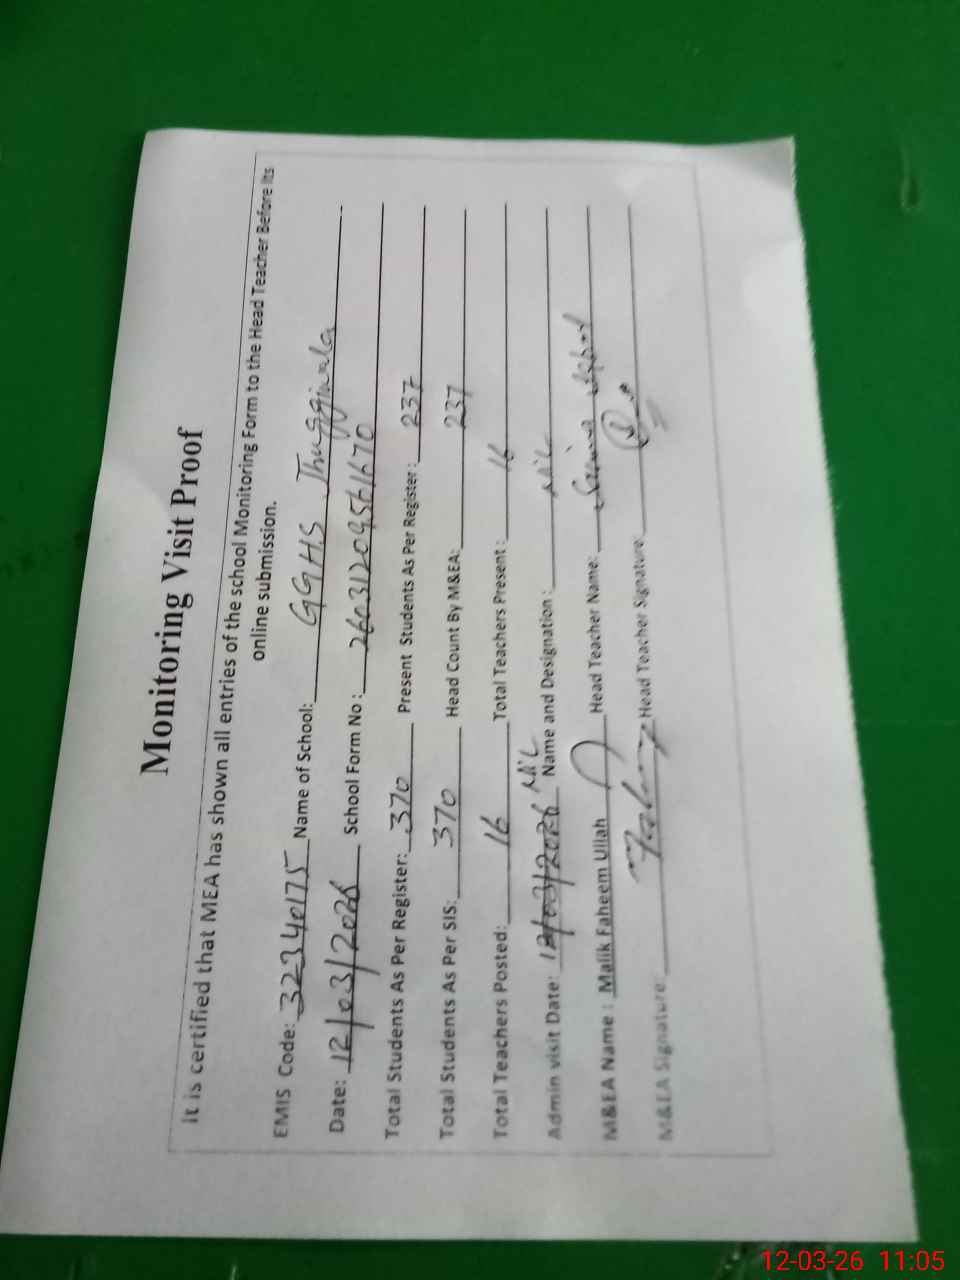 Monitoring Visit Proof
It is certified that MEA has shown all entries of the school Monitoring Form to the Head Teacher Before its
online submission.
EMIS Code: 32340175 Name of School: GGHS Jhuggiwala
Date: 12/03/2026 School Form No : 26031209561670
Total Students As Per Register: 370 Present Students As Per Register: 237
Total Students As Per SIS: 370 Head Count By M&EA: 237
Total Teachers Posted: 16 Total Teachers Present : 16
Admin visit Date: 12/03/2026 Nil Name and Designation : Nil
M&EA Name : Malik Faheem Ullah Head Teacher Name:
M&EA Signature: Head Teacher Signature:
12-03-26 11:05